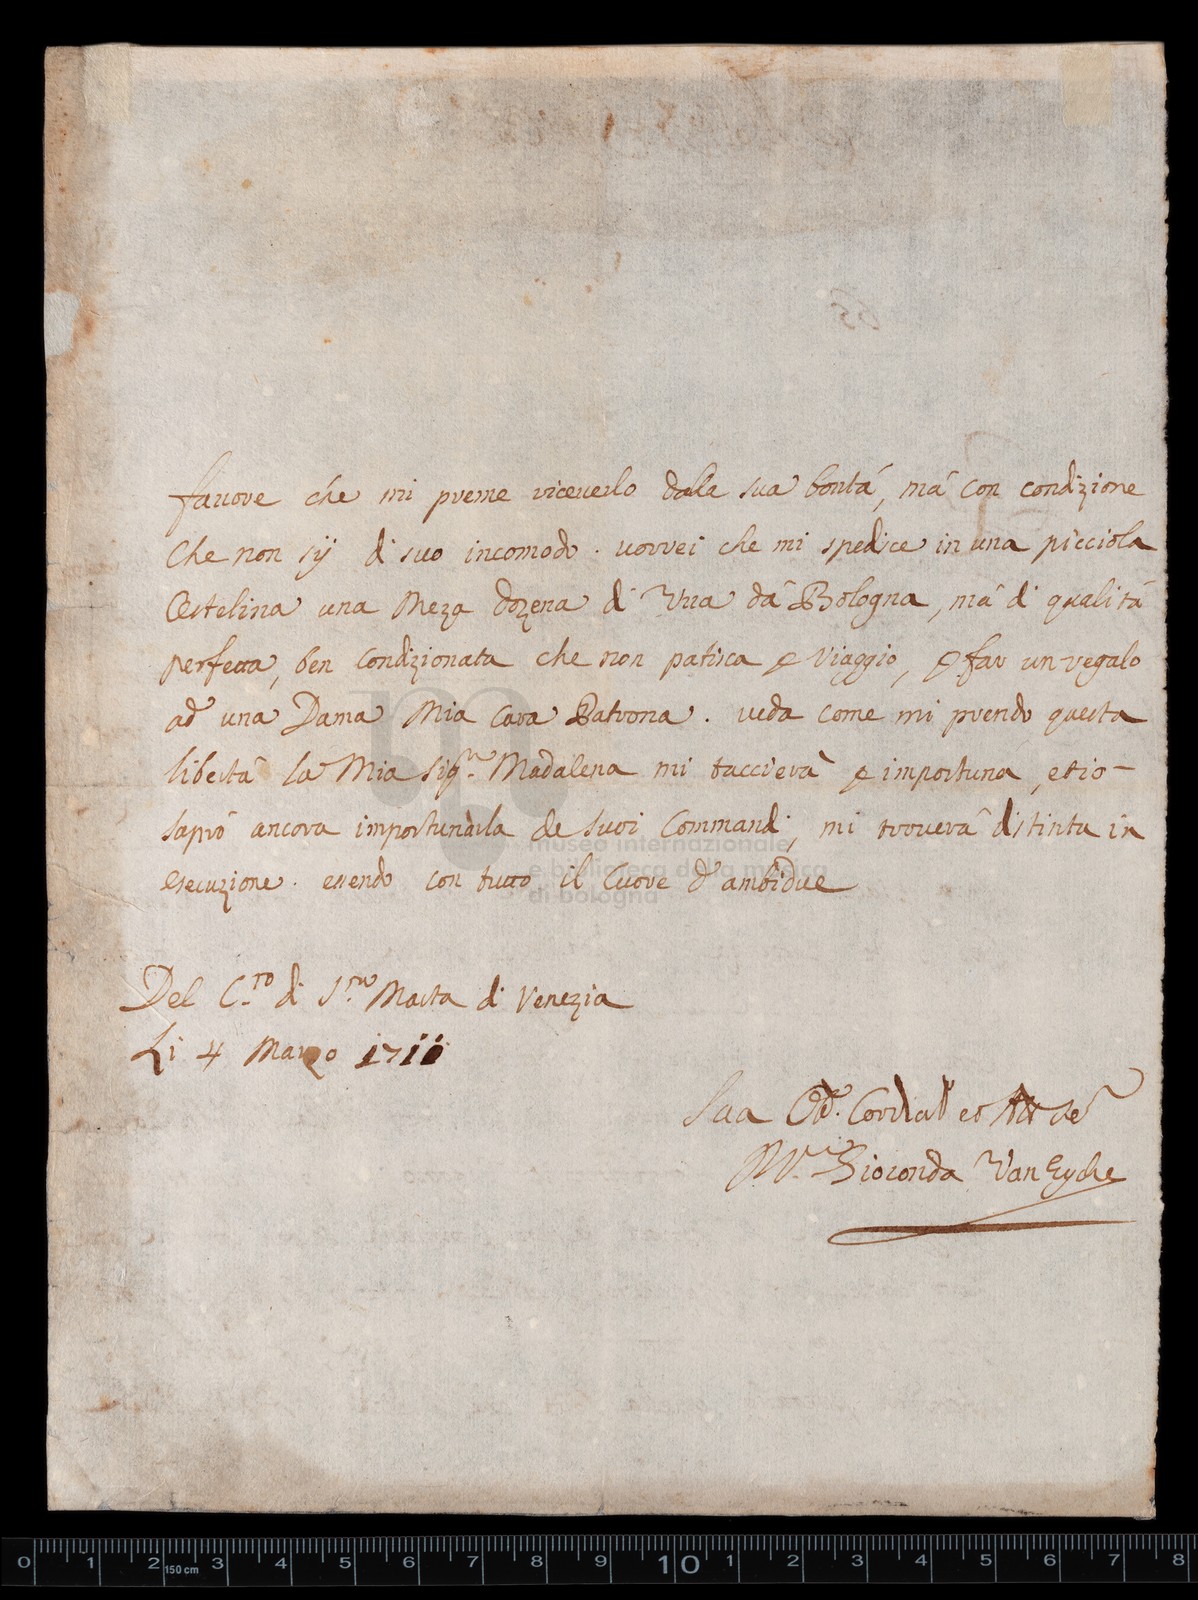 fauore che mi preme riceuerlo dalla sua bontá, má con condizione
Che non sij di suo incomodo. uorrei che mi spedisce in una picciola
Cestelina una Meza dozena di Vua dá Bologna, má di qualitá
perfetta, ben Condizionata che non patisca p Viaggio, p far un regalo
ad una Dama Mia Cara Patrona. ueda come mi prendo questa
libertá la Mia Sigra Madalena mi taccierá p importuna, et io
sapró ancora importunarla de Suoi Commandi, mi trouerá distinta in
esecuzione. essendo con tutto il Cuore d'ambidue
Del C.ro di S.ta Marta di Venezia
Li 4 Marzo 1711
Sua Cordial et
Gioconda Van Eyche
museo internazionale
e biblioteca della musica
di bologna
65
0 1 2 150 cm 3 4 5 6 7 8 9 10 1 2 3 4 5 6 7 8